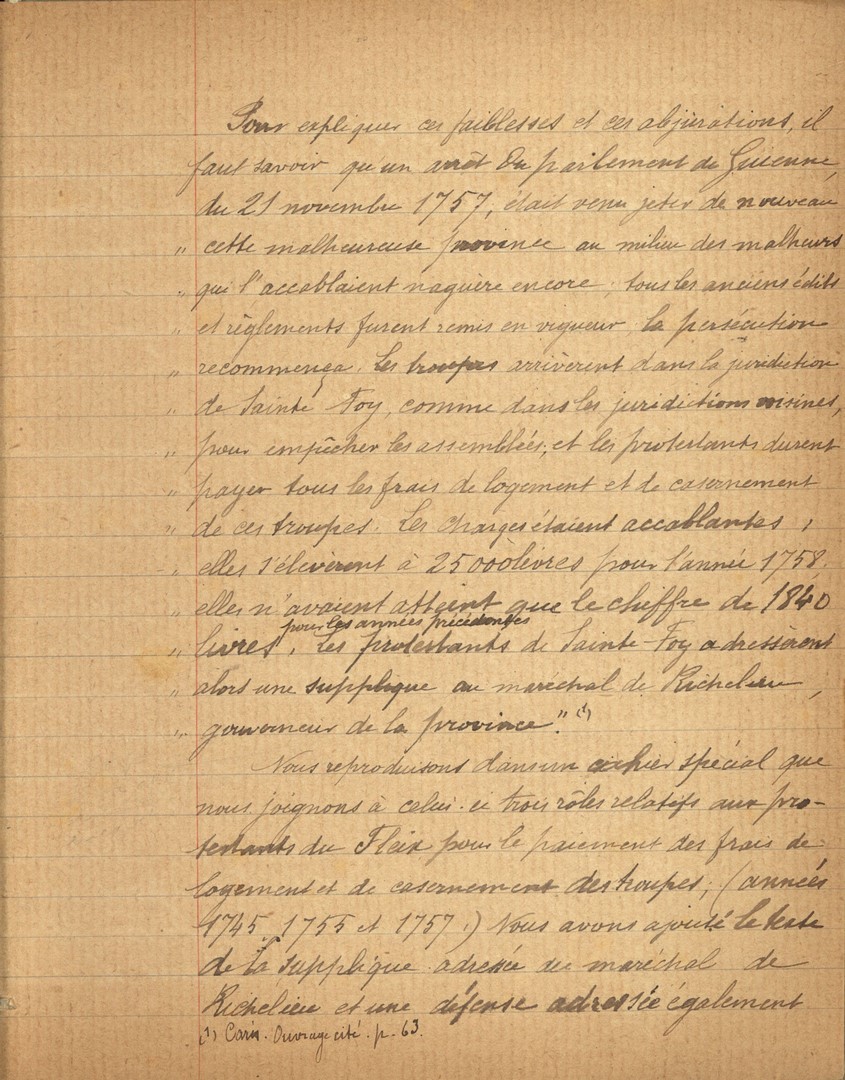 Pour expliquer ces faiblesses et ces abjurations, il
faut savoir que un arrêt du parlement de Guienne,
du 21 novembre 1757, était venu jeter de nouveau
" cette malheureuse province au milieu des malheurs
" qui l'accablaient naguère encore ; tous les anciens édits
" et règlements furent remis en vigueur, la persécution
" recommença. Les troupes arrivèrent dans la juridiction
" de Sainte Foy, comme dans les juridictions voisines,
" pour empêcher les assemblées, et les protestants durent
" payer tous les frais de logement et de casernement
" de ces troupes. Les charges étaient accablantes ;
" elles s'élevèrent à 25000 livres pour l'année 1758.
" elles n'avaient atteint que le chiffre de 1840
pour les années précédentes
" livres. Les protestants de Sainte-Foy adressèrent
" alors une supplique au maréchal de Richelieu,
" gouverneur de la province". (1)
Nous reproduisons dans un cahier spécial que
nous joignons à celui-ci trois rôles relatifs aux pro-
testants du Fleix pour le paiement des frais de
logement et de casernement des troupes, (années
1745, 1755 et 1757.) Nous avons ajouté le texte
de la supplique adressée au maréchal de
Richelieu et une défense adressée également
(1) Ouvrage cité. p. 63.